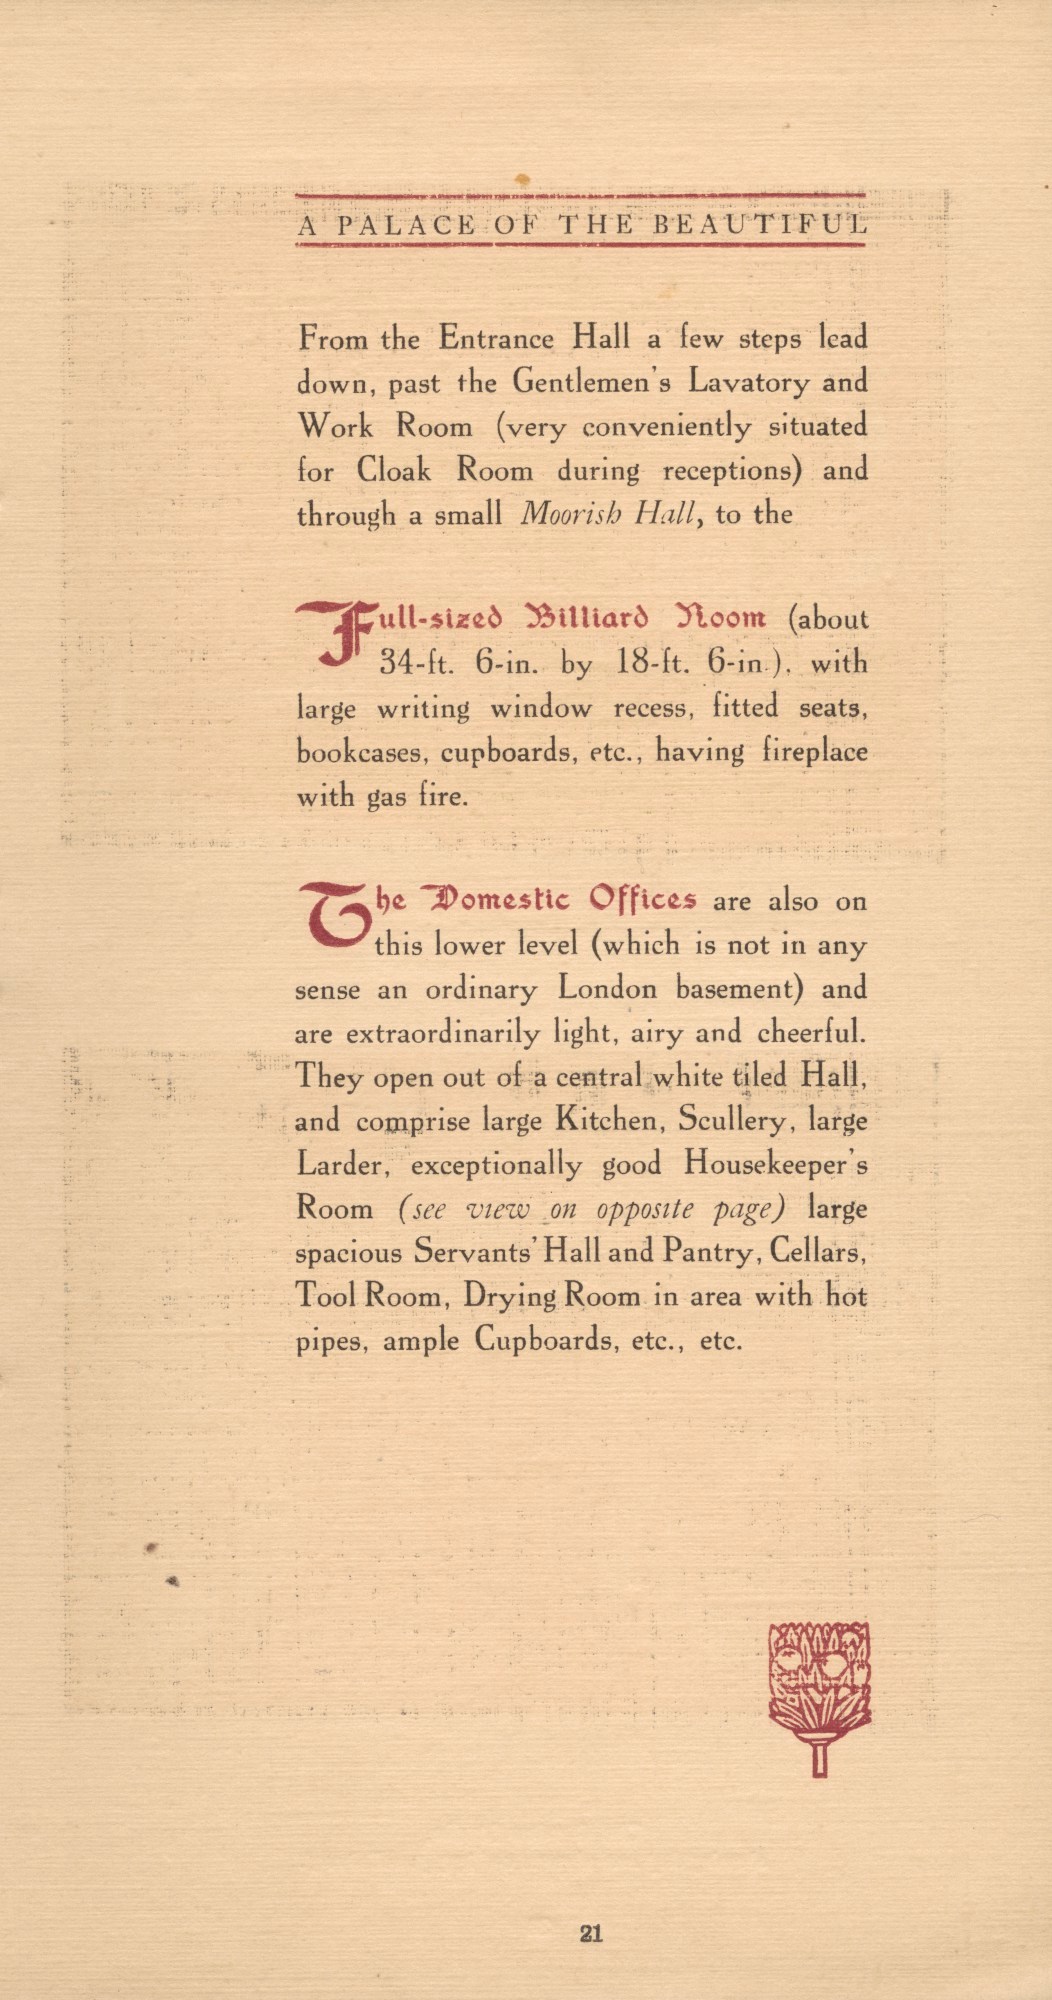 A PALACE OF THE BEAUTIFUL
From the Entrance Hall a few steps lead
down, past the Gentlemen's Lavatory and
Work Room (very conveniently situated
for Cloak Room during receptions) and
through a small Moorish Hall, to the
Full-sized Billiard Room (about
34-ft. 6-in. by 18-ft. 6-in.), with
large writing window recess, fitted seats,
bookcases, cupboards, etc., having fireplace
with gas fire.
The Domestic Offices are also on
this lower level (which is not in any
sense an ordinary London basement) and
are extraordinarily light, airy and cheerful.
They open out of a central white tiled Hall,
and comprise large Kitchen, Scullery, large
Larder, exceptionally good Housekeeper's
Room (see view on opposite page) large
spacious Servants' Hall and Pantry, Cellars,
Tool Room, Drying Room in area with hot
pipes, ample Cupboards, etc., etc.
21